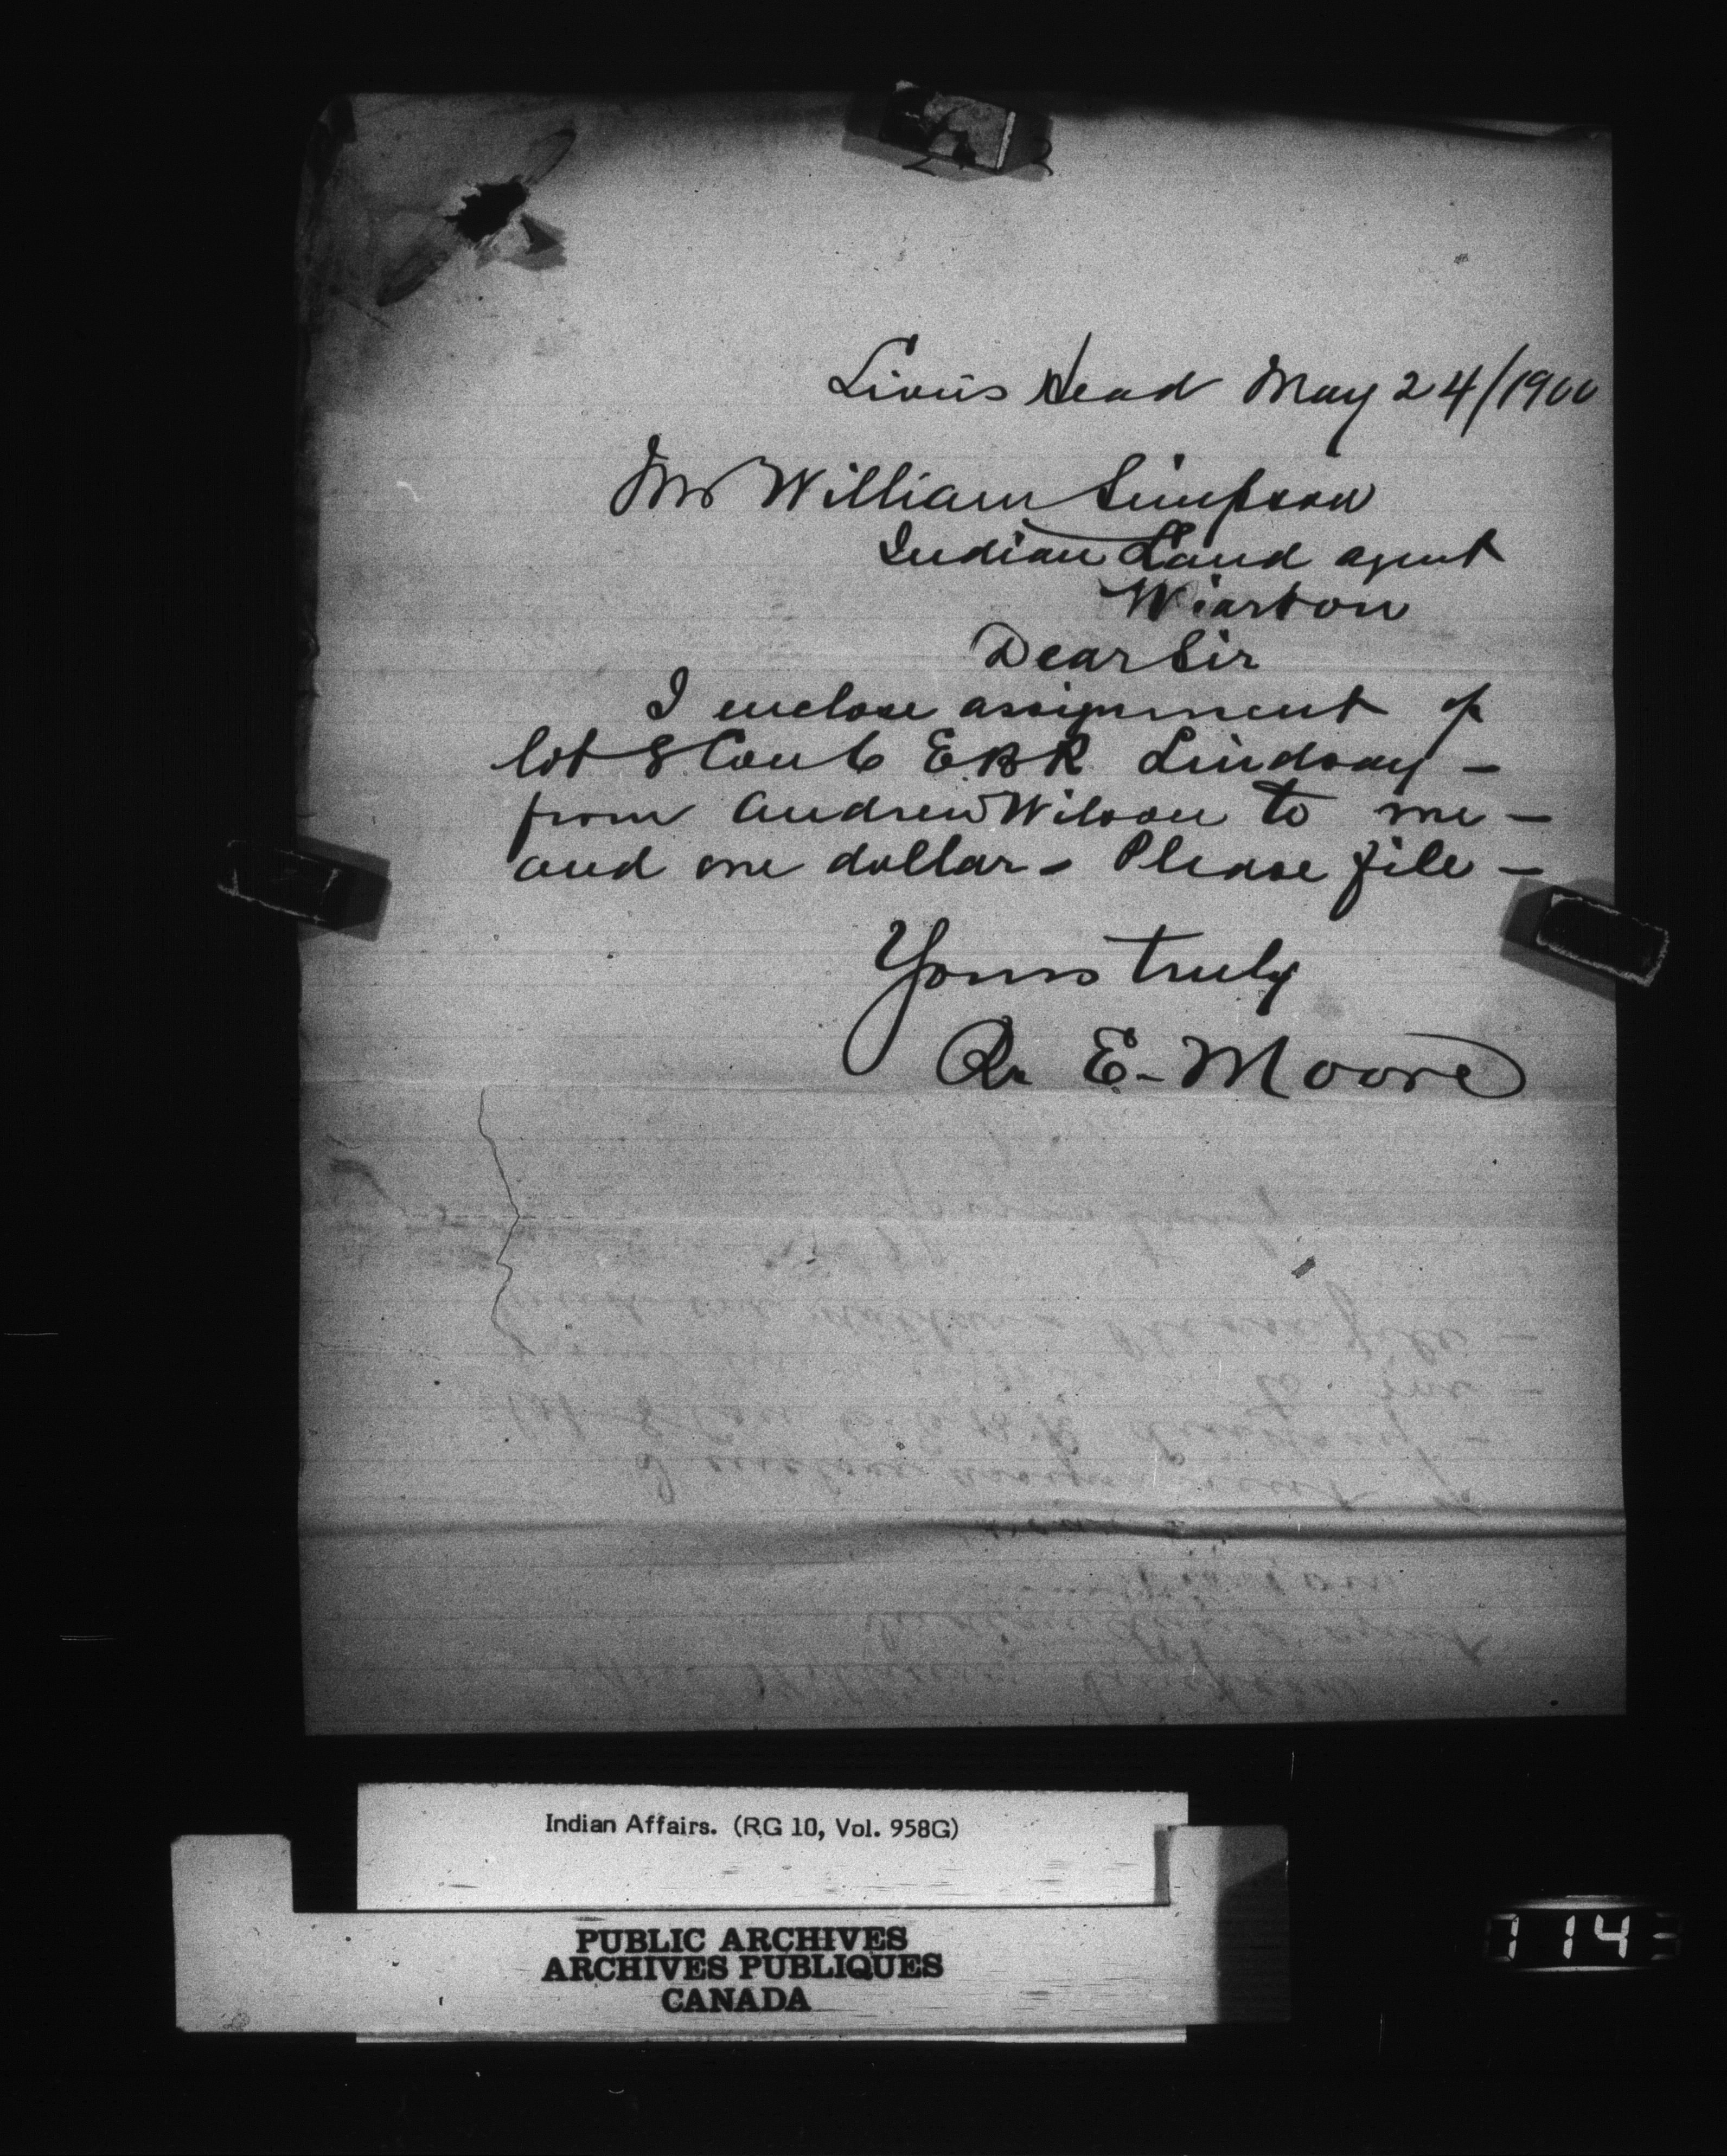 Lion's Head May 24/1900
Mr William Simpson
Indian Land agent
Wiarton
Dear Sir
I enclose assignment of
lot 8 Con 6 EBR Lindsay -
from Andrew Wilson to me -
and one dollar - Please file -
Yours truly
R. E. Moore
Indian Affairs. (RG 10, Vol. 958G)
PUBLIC ARCHIVES
ARCHIVES PUBLIQUES
CANADA
114